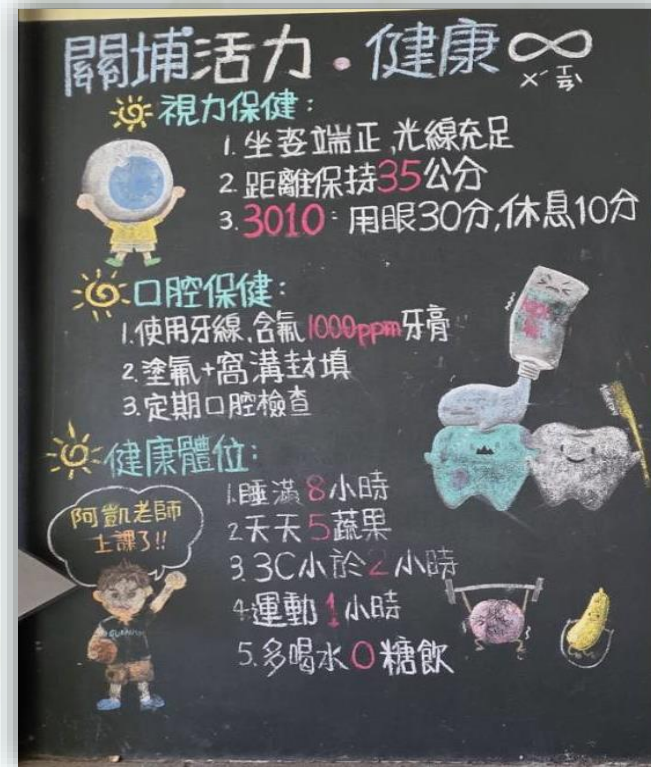 關埔活力·健康∞
視力保健:
1. 坐姿端正,光線充足
2. 距離保持35公分
3. 3010:用眼30分,休息10分
口腔保健:
1.使用牙線.含氟1000ppm牙膏
2.塗氟+窩溝封填
3.定期口腔檢查
健康體位:
1.睡滿8小時
2.天天5蔬果
3.3C小於2小時
4.運動1小時
5.多喝水0糖飲
阿凱老師
上課了!!